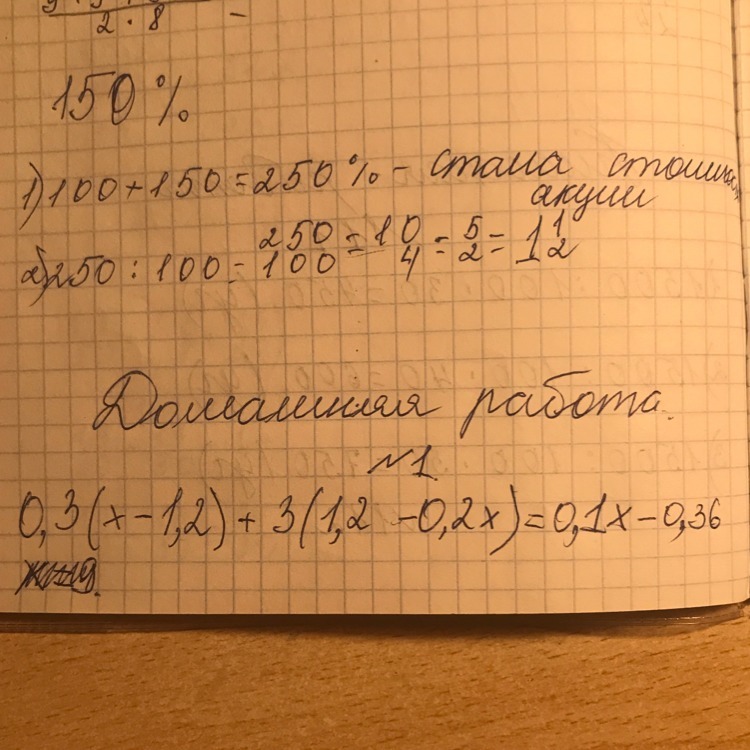 2 · 8 -
150%
1) 100 + 150 = 250% - стала
акции
2) 250 : 100 = 250/100 = 10/4 = 5/2 = 1 1/2
Домашняя работа.
№1
0,3(x - 1,2) + 3(1,2 - 0,2x) = 0,1x - 0,36